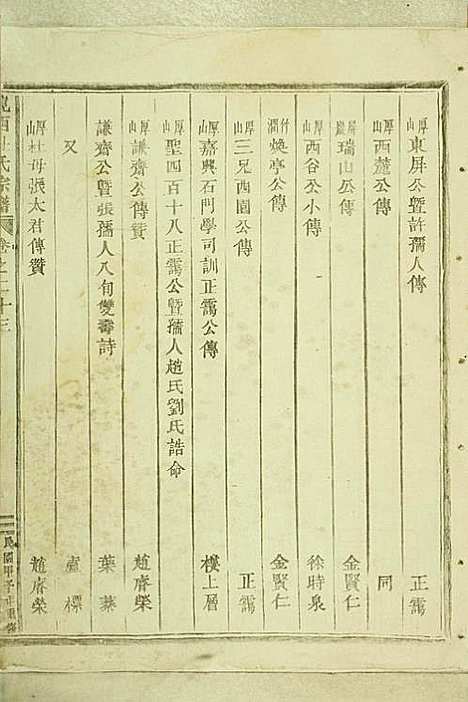 厚山 東屏公暨許孺人傳 正靄
厚山 西麓公傳 同
屏巖 瑞山公傳 金賢仁
厚山 西谷公小傳 徐時泉
竹澗 煥亭公傳 金賢仁
厚山 三兄西園公傳 正靄
厚山 嘉興石門學司訓正靄公傳 樓上層
厚山 聖四百十八正靄公暨孺人趙氏劉氏誥命
厚山 謙齋公傳贊 趙睿榮
謙齋公暨張孺人八旬雙壽詩 葉蓁
又 盧標
厚山 杜母張太君傳贊 趙睿榮
西杜氏宗譜 卷之二十三 民國甲子正重修